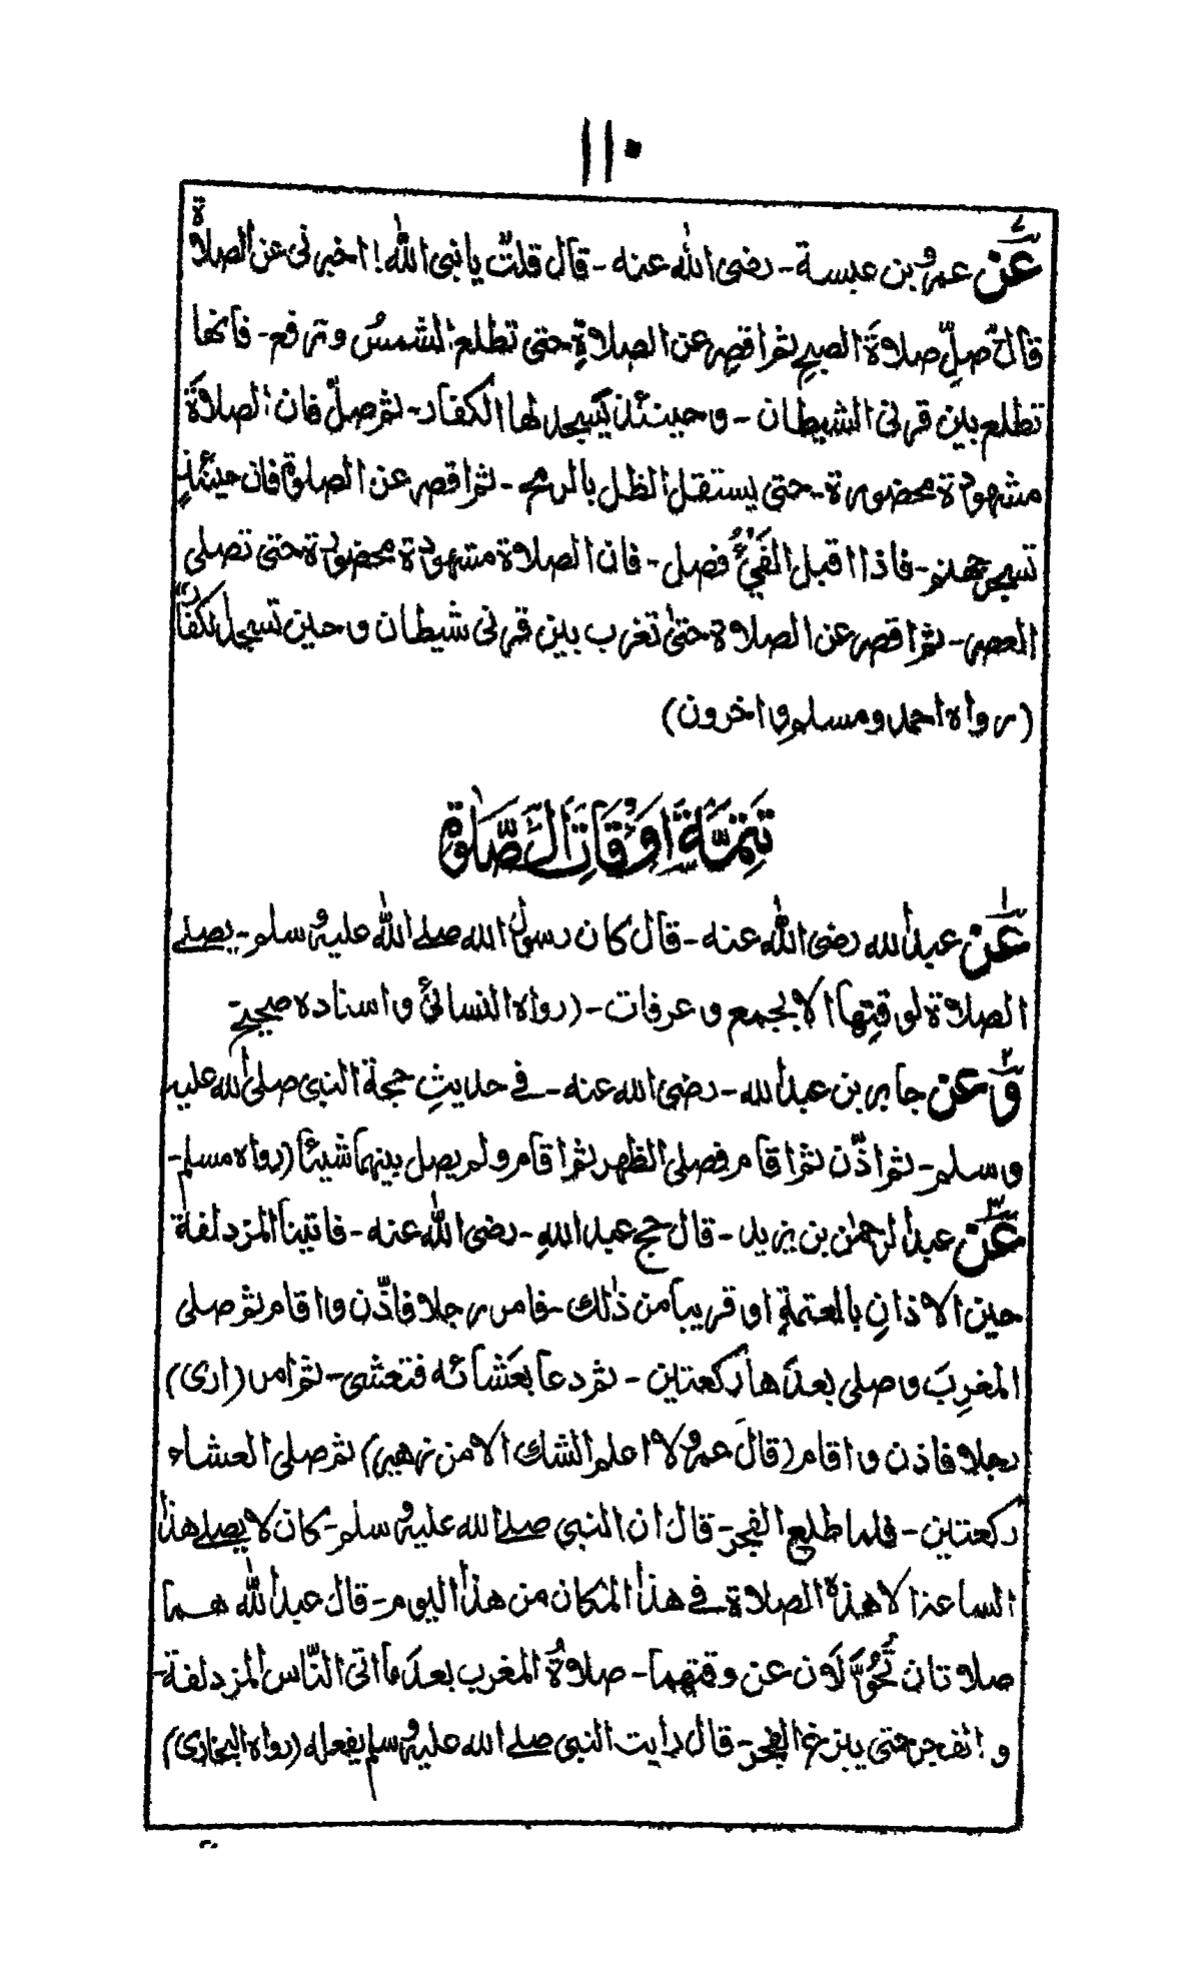 ١١٠
٧
عَن عمرو بن عبسة - رضی الله عنه - قال قلتُ یا نبی الله! اخبرنی عن الصلاة
قالَ صلِّ صلاةَ الصبحِ ثم اقصر عن الصلاةِ حتی تطلع الشمسُ وترفع - فانها
تطلع بین قرنی الشیطان - وحینئذ یَسجد لها الکفار - ثم صلِّ فان الصلاةَ
مشهودة محضورة - حتی یستقل الظل بالرمح - ثم اقصر عن الصلوة فان حینئذٍ
تسجر جهنم - فاذا اقبل الفَیْءُ فصل - فان الصلاة مشهودة محضورة حتی تصلی
العصر - ثم اقصر عن الصلاة حتیٰ تغرب بین قرنی شیطان وحین تسجد لکفار
(رواه احمد ومسلم واخرون)
تَتِمَّةُ اَوْقَاتِ الصَّلٰوة
١
عَن عبد الله رضی الله عنه - قال کان رسول الله صلے الله علیہ وسلم - یصلے
الصلاة لوقتِها الا بجمع وعرفات - (رواه النسائیُ واسناده صحیح)
٢
وَعَن جابر بن عبد الله - رضی الله عنه - فے حدیثِ حجة النبی صلی الله علیہ
وسلم - ثم اذّن ثم اقام فصلی الظهر ثم اقام ولم یصل بینهما شیئا (رواه مسلم -
٣
عَن عبد الرحمٰن بن یزید - قال حج عبد اللهِ - رضی الله عنه - فاتینا المزدلفة
حین الاذانِ بالعتمةِ او قریبا من ذٰلك - فامر رجلا فاذّن واقام ثم صلی
المغرِبَ وصلی بعدَها رکعتین - ثم دعا بعَشائه فتعشی - ثم امر (اری)
رجلا فاذن واقام (قالَ عمرو لا اعلم الشك الا من زهیر) ثم صلی العشاء
رکعتین - فلما طلع الفجر - قال ان النبی صلے الله علیہ وسلم - کان لا یصلے هذا
الساعة الا هذه الصلاة فے هذا المکان من هذا الیوم - قال عبد الله هما
صلاتان تُحَوَّلان عن وقتهما - صلاةُ المغرب بعدَ ما اتی النّاس المزدلفة -
والفجر حتی یبزغ الفجر - قال رایت النبی صلے الله علیہ وسلم یفعله (رواه البخاری)